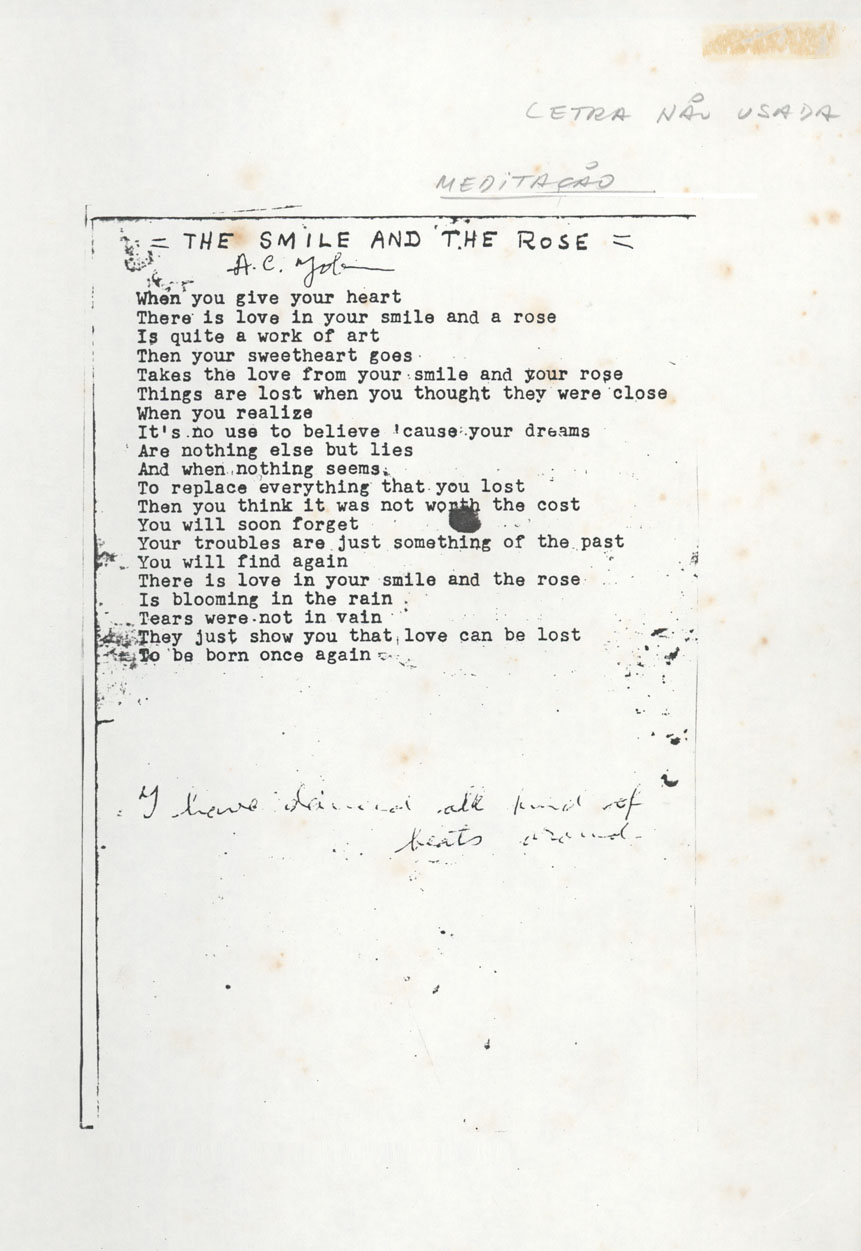 LETRA NÃO USADA
MEDITAÇÃO
= THE SMILE AND THE ROSE =
A.C. Jobim
When you give your heart
There is love in your smile and a rose
Is quite a work of art
Then your sweetheart goes
Takes the love from your smile and your rose
Things are lost when you thought they were close
When you realize
It's no use to believe 'cause your dreams
Are nothing else but lies
And when nothing seems
To replace everything that you lost
Then you think it was not worth the cost
You will soon forget
Your troubles are just something of the past
You will find again
There is love in your smile and the rose
Is blooming in the rain
Tears were not in vain
They just show you that love can be lost
To be born once again
I have all kind of
beats around